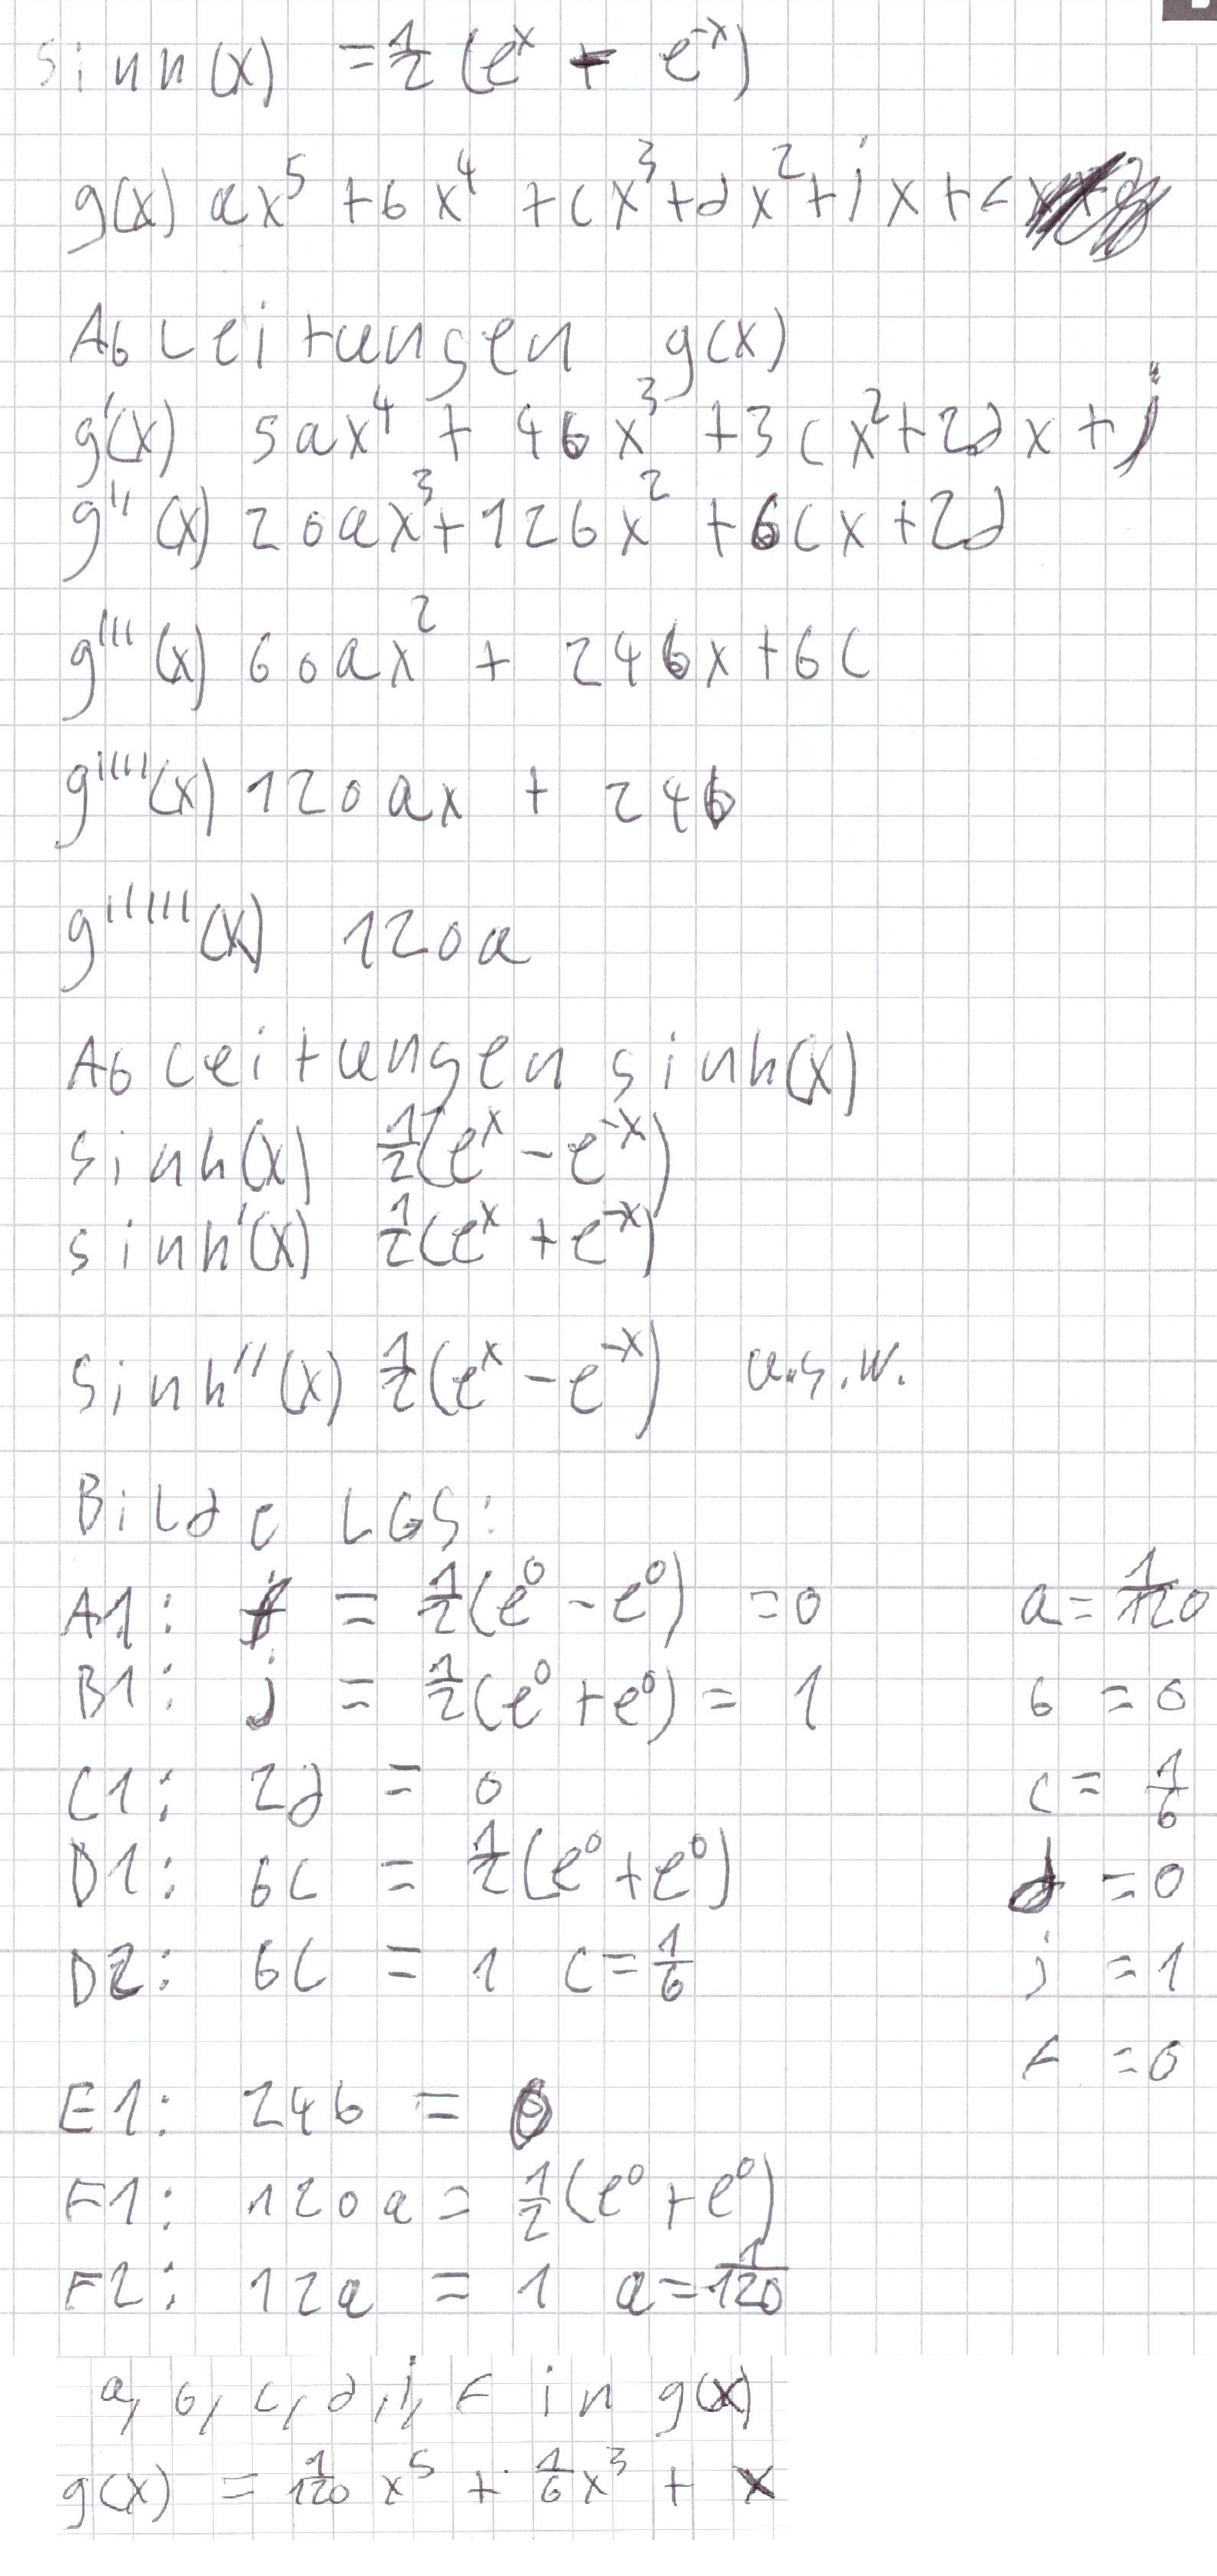 sinh(x) = 1/2 (e^x - e^-x)
g(x) ax^5 + bx^4 + cx^3 + dx^2 + jx + f
Ableitungen g(x)
g'(x) 5ax^4 + 4bx^3 + 3cx^2 + 2dx + j
g''(x) 20ax^3 + 12bx^2 + 6cx + 2d
g'''(x) 60ax^2 + 24bx + 6c
g''''(x) 120ax + 24b
g'''''(x) 120a
Ableitungen sinh(x)
sinh(x) 1/2(e^x - e^-x)
sinh'(x) 1/2(e^x + e^-x)
sinh''(x) 1/2(e^x - e^-x) u.s.w.
Bilde LGS:
A1: f = 1/2(e^0 - e^0) = 0 a = 1/120
B1: j = 1/2(e^0 + e^0) = 1 b = 0
C1: 2d = 0 c = 1/6
D1: 6c = 1/2(e^0 + e^0) d = 0
D2: 6c = 1 c = 1/6 j = 1
f = 0
E1: 24b = 0
F1: 120a = 1/2(e^0 + e^0)
F2: 12a = 1 a = 1/120
a, b, c, d, j, f in g(x)
g(x) = 1/120 x^5 + 1/6 x^3 + x